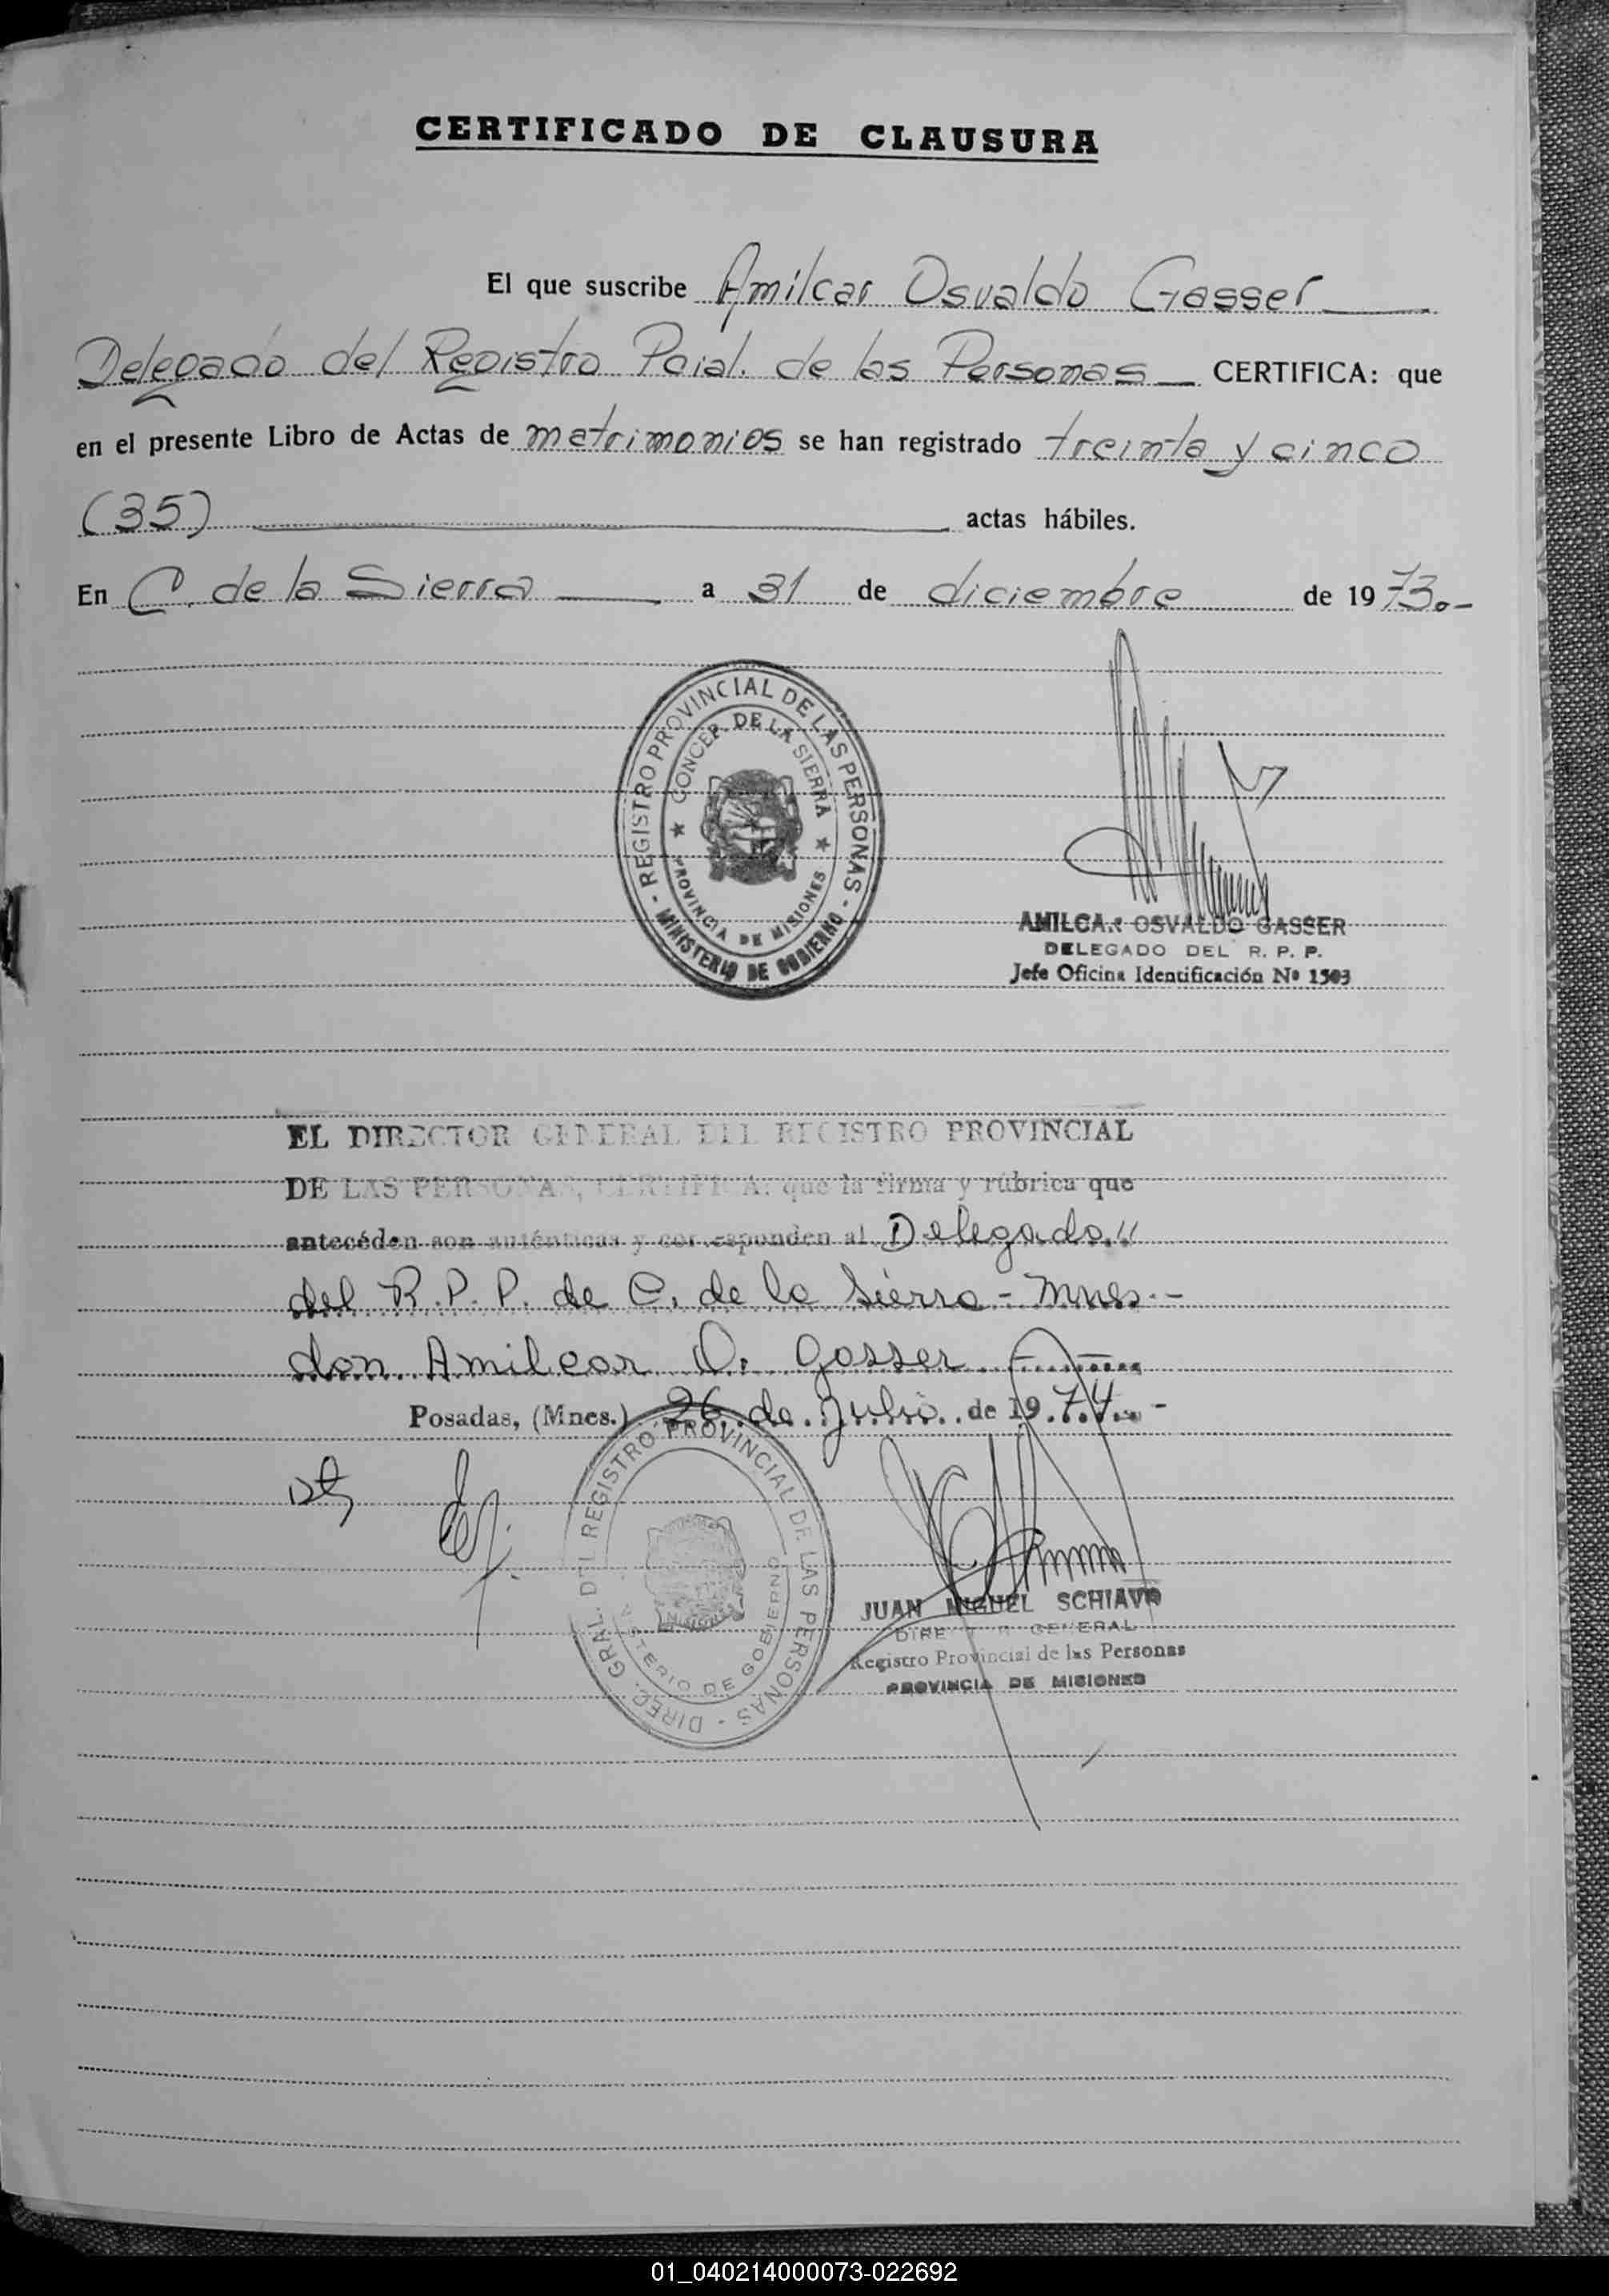 CERTIFICADO DE CLAUSURA
El que suscribe Amilcar Osvaldo Gasser
Delegado del Registro Pcial. de las Personas CERTIFICA: que
en el presente Libro de Actas de matrimonios se han registrado treinta y cinco
(35) actas hábiles.
En C. de la Sierra a 31 de diciembre de 1973.-
- REGISTRO PROVINCIAL DE LAS PERSONAS -
MINISTERIO DE GOBIERNO
★ CONCEP. DE LA SIERRA ★
PROVINCIA DE MISIONES
AMILCAR OSVALDO GASSER
DELEGADO DEL R. P. P.
Jefe Oficina Identificación Nº 1503
EL DIRECTOR GENERAL DEL REGISTRO PROVINCIAL
DE LAS PERSONAS, CERTIFICA: que la firma y rúbrica que
antecéden son auténticas y corresponden al Delegado
del R.P.P. de C. de la Sierra - Mnes.-
don Amilcar O. Gasser
Posadas, (Mnes.) 26 de Julio de 1974.-
DIREC. GRAL. DEL REGISTRO PROVINCIAL DE LAS PERSONAS -
MINISTERIO DE GOBIERNO
MISIONES
JUAN MIGUEL SCHIAVO
DIRECTOR GENERAL
Registro Provincial de las Personas
PROVINCIA DE MISIONES
01_040214000073-022692